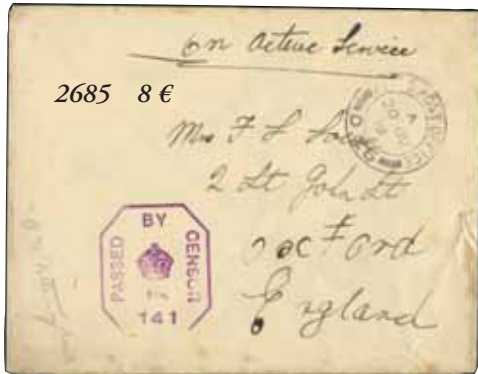 On Active Service
2685 8 €
POST OFFICE
Mrs F L
2 St John St
Oxford
England
PASSED BY CENSOR
No.
141